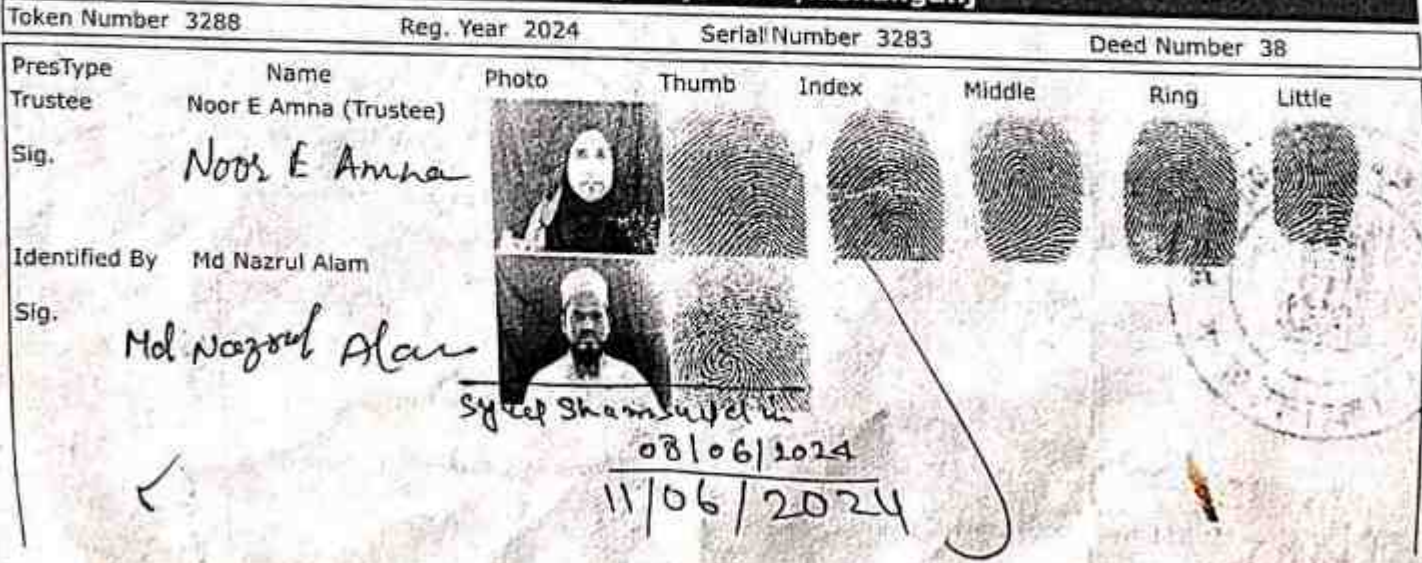 Token Number 3288 Reg. Year 2024 Serial Number 3283 Deed Number 38
PresType Name Photo Thumb Index Middle Ring Little
Trustee Noor E Amna (Trustee)
Sig. Noor E Amna
Identified By Md Nazrul Alam
Sig. Md Nazrul Alam
Syed Shamsuddin
08/06/2024
11/06/2024